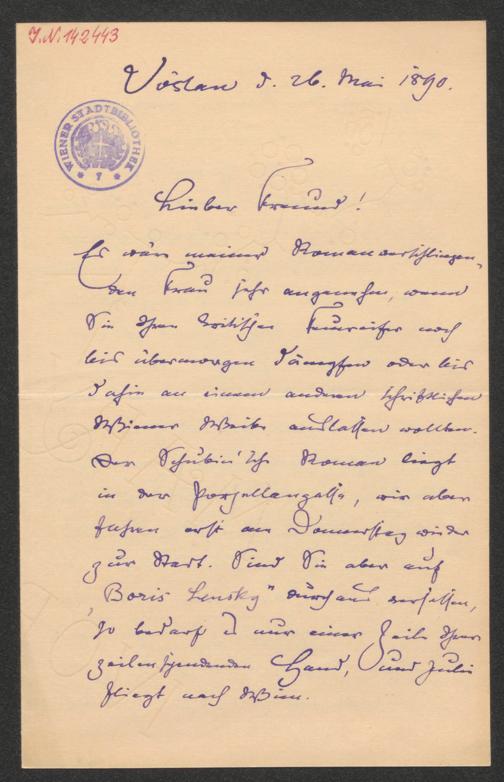 J.N. 142443
Vöslau d. 26. Mai 1890.
WIENER STADTBIBLIOTHEK
Lieber Freund!
Es wäre meiner Romanverschlingen-
den Frau sehr angenehm, wenn
Sie Ihren kritischen Feuereifer noch
bis übermorgen dämpfen oder bis
dahin an einem anderen schriftlichen
Wiener Weibe auslassen wollten.
Der Schubin'sche Roman liegt
in der Porzellangasse, wir aber
fahren erst am Donnerstag wieder
zur Stadt. Sind Sie aber auf
„Boris Lensky" durchaus versessen,
so bedarf es nur einer Zeile Ihrer
zeilenspendenden Hand, und Julie
fliegt nach Wien.